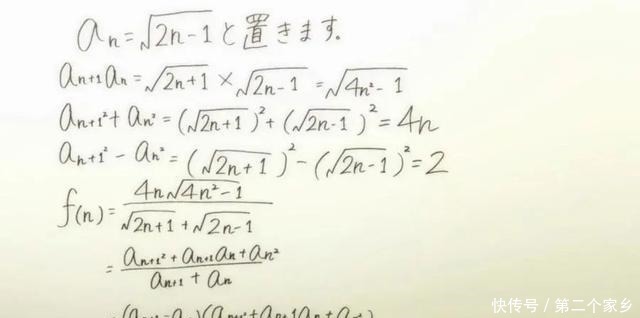 an=√2n-1 と置きます。
an+1an=√2n+1×√2n-1=√4n²-1
an+1²+an²=(√2n+1)²+(√2n-1)²=4n
an+1²-an²=(√2n+1)²-(√2n-1)²=2
f(n)=4n√4n²-1/√2n+1+√2n-1
=an+1²+an+1an+an²/an+1+an
快传号/第二个家乡